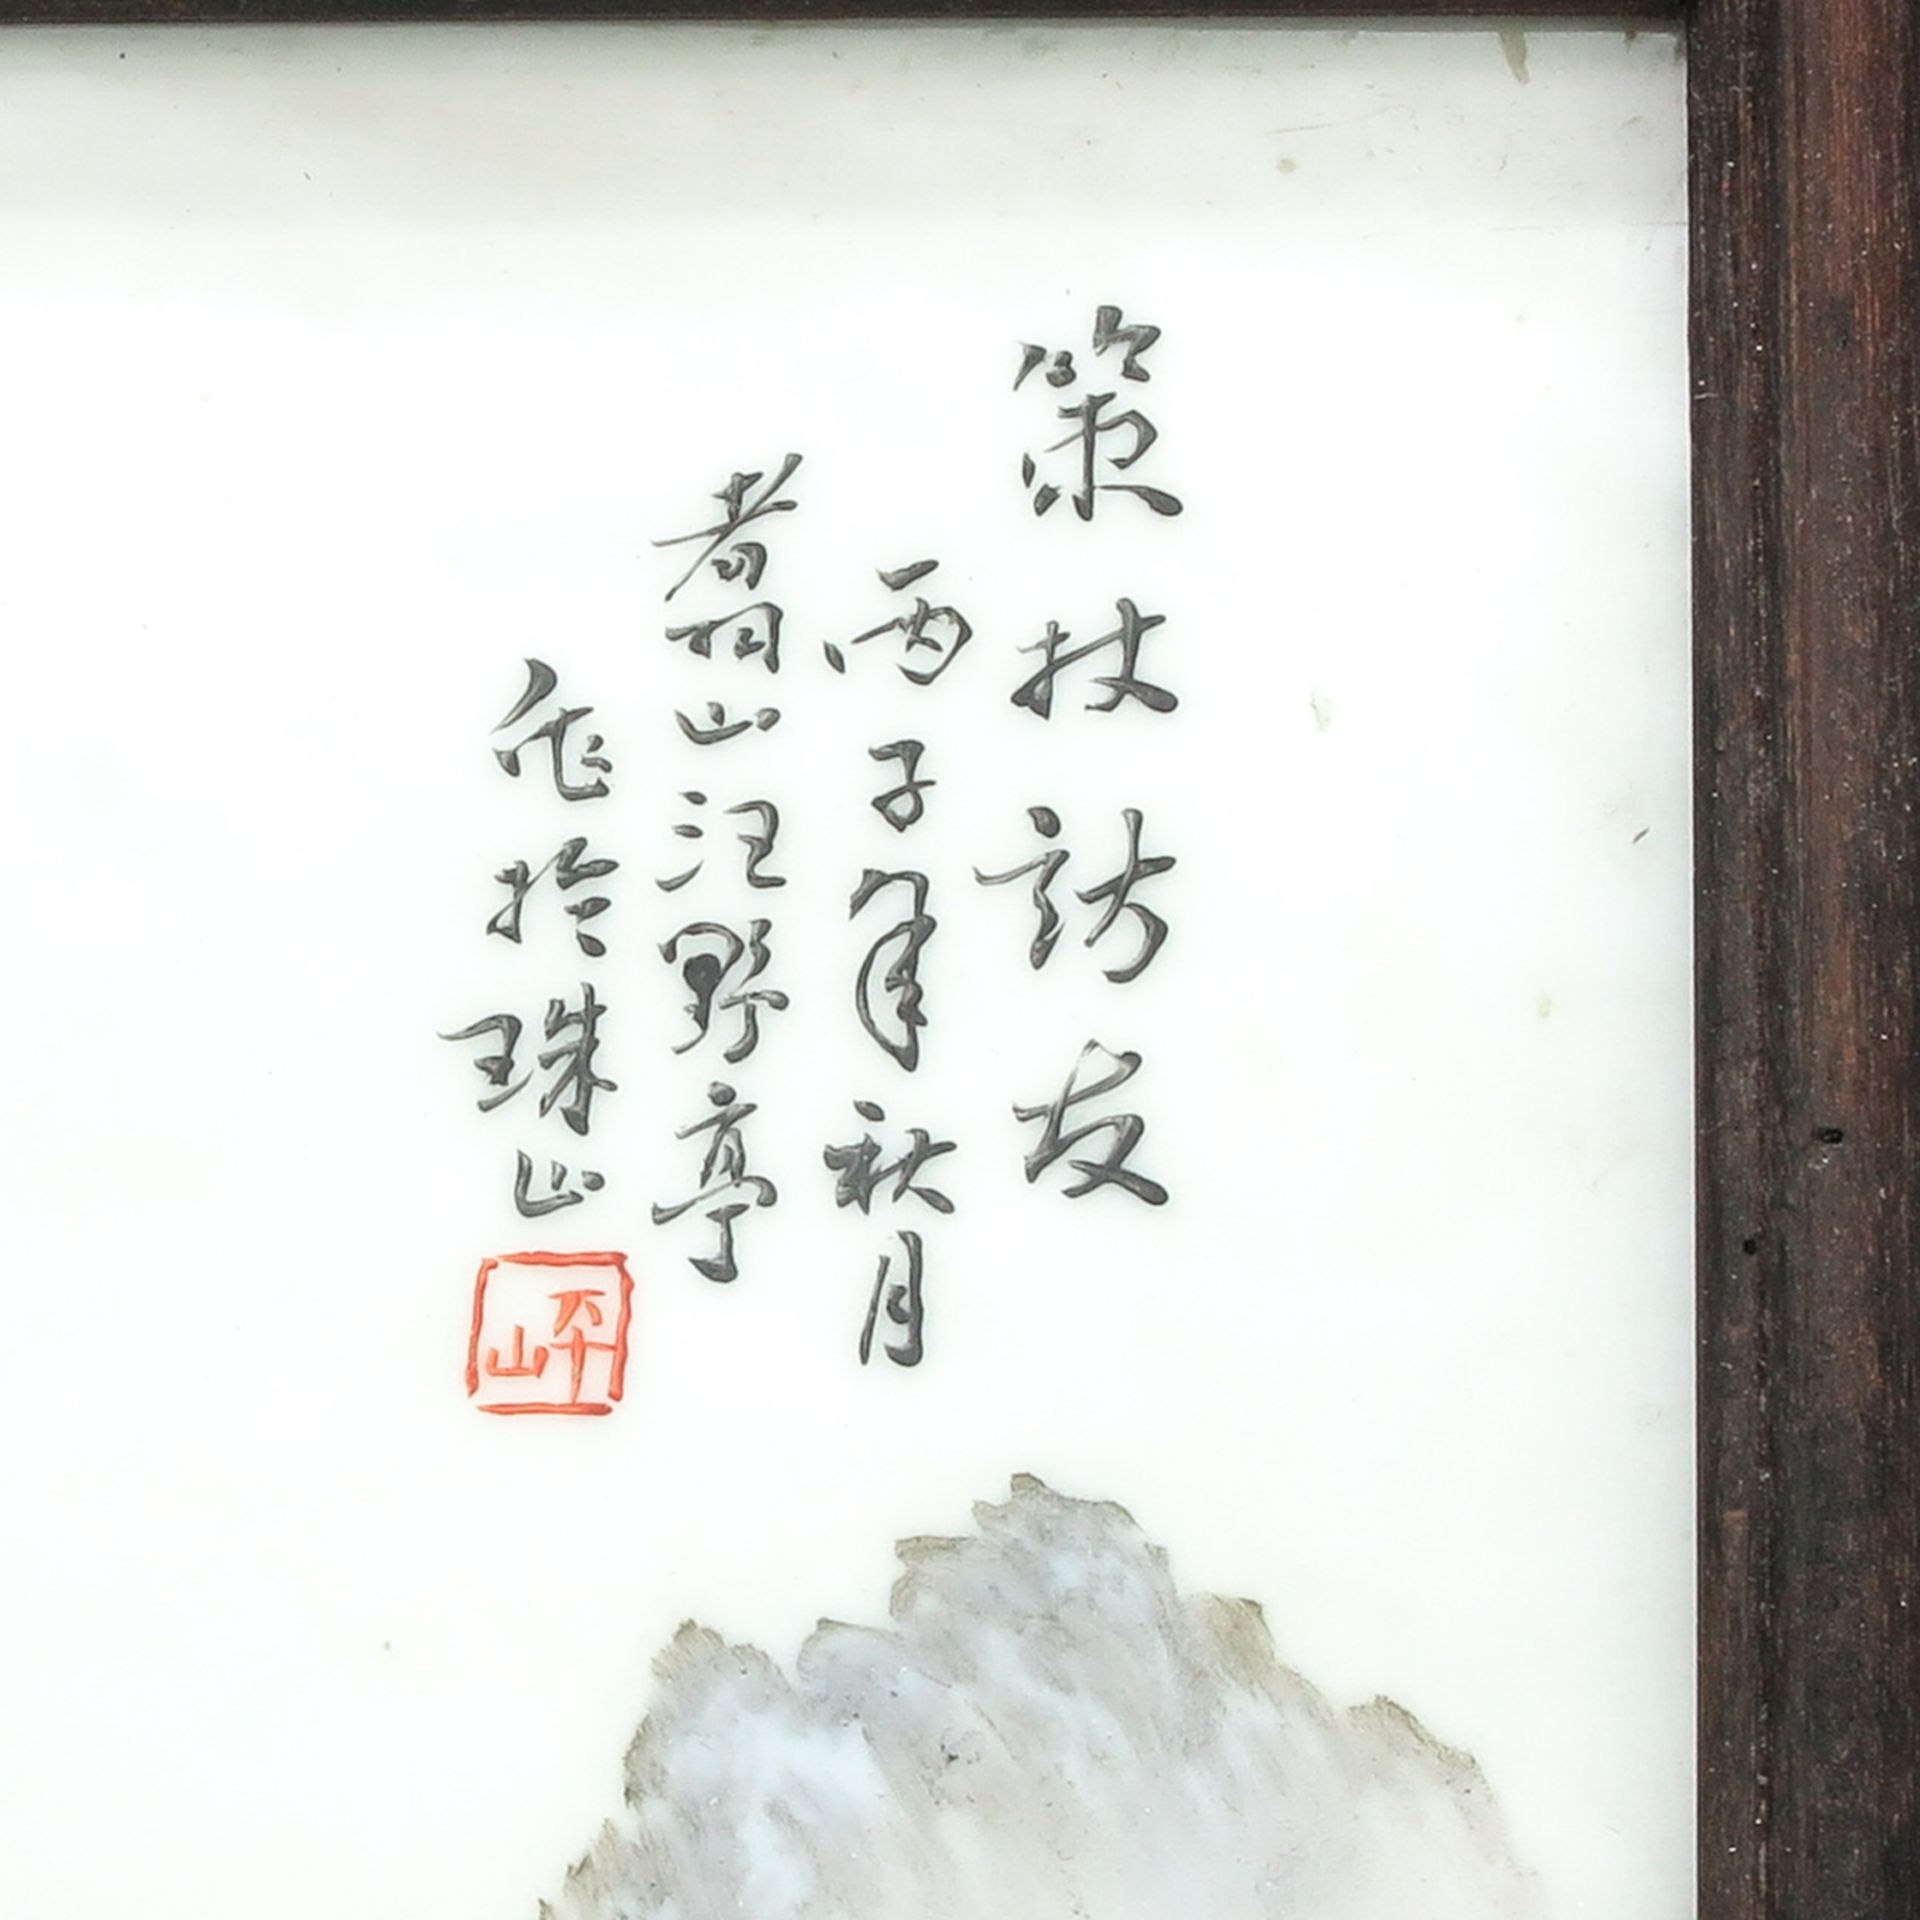 策杖訪友
丙子年秋月
翥山汪野亭
作於珠山
平山